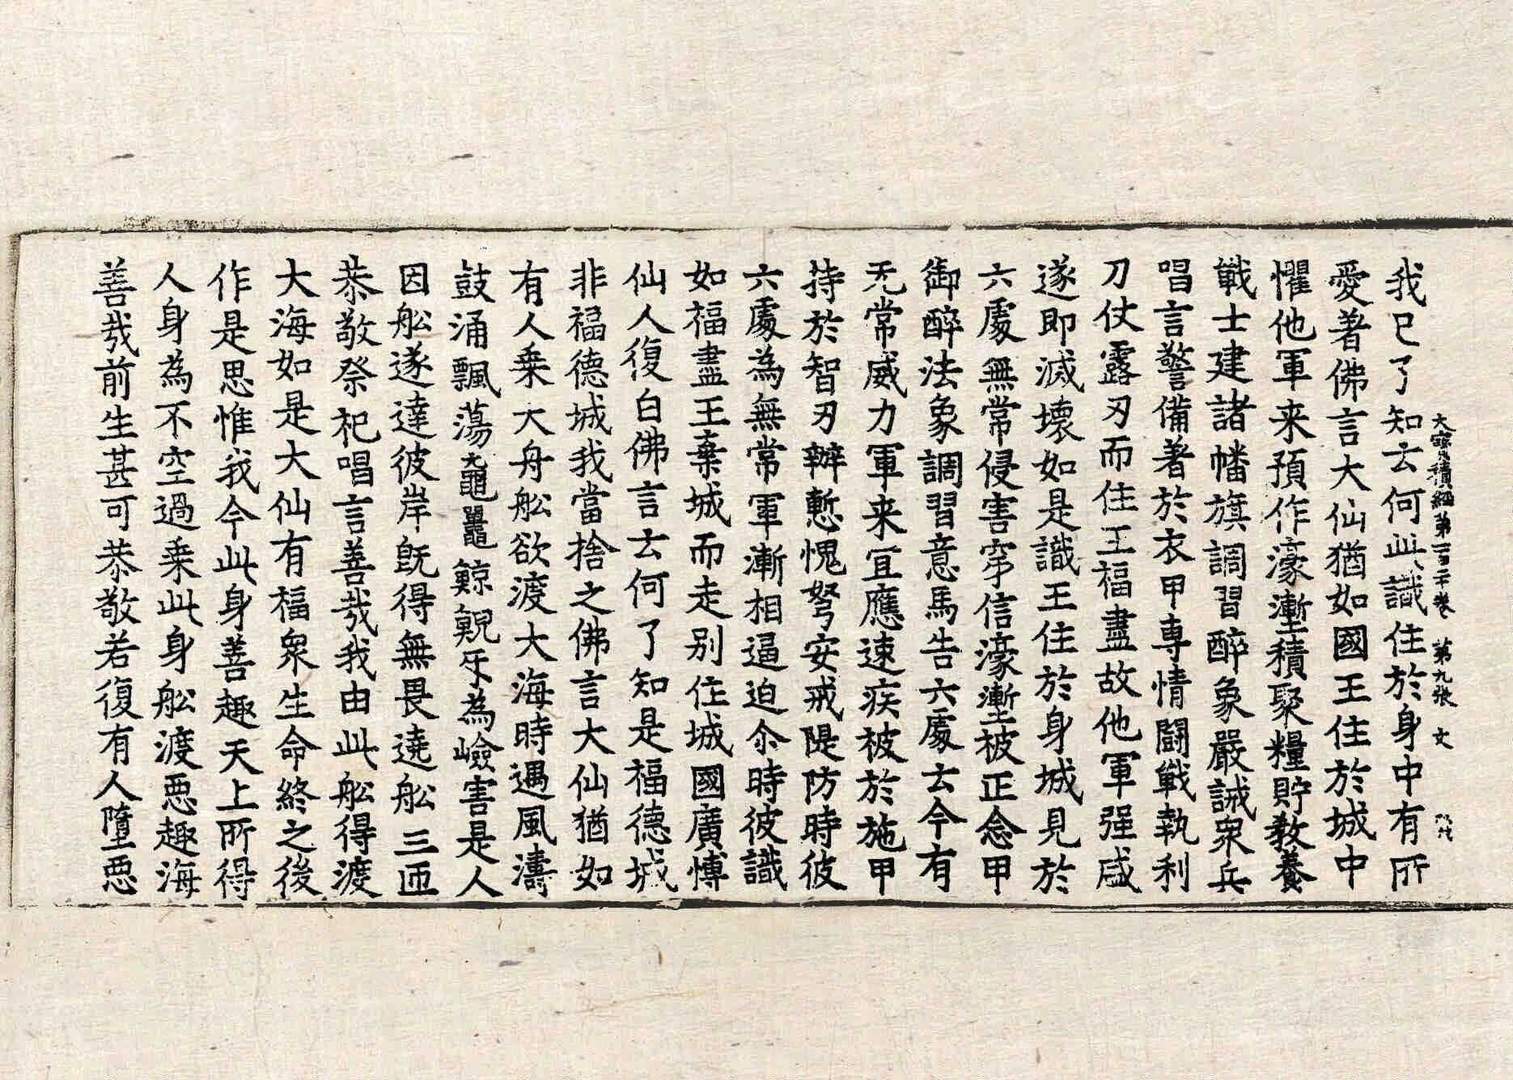 大寶積經第一百二十卷 第九張 文
我已了知云何此識住於身中有所
愛著佛言大仙猶如國王住於城中
懼他軍来預作濠壍積聚糧貯教養
戰士建諸幡旗調習醉象嚴誡衆兵
唱言警備著於衣甲専情鬪戰執利
刀仗露刃而住王福盡故他軍强盛
遂即滅壞如是識王住於身城見於
六處無常侵害穿信濠壍被正念甲
御醉法象調習意馬告六處云今有
无常威力軍来冝應速疾被於施甲
持於智刃辦慙愧弩安戒隄防時彼
六處為無常軍漸相逼迫尒時彼識
如福盡王棄城而走别住城國廣愽
仙人復白佛言云何了知是福德城
非福德城我當捨之佛言大仙猶如
有人乗大舟舩欲渡大海時遇風濤
鼓涌飄蕩大黿鼉鯨鯢牙為嶮害是人
因舩遂達彼岸旣得無畏遶舩三匝
恭敬祭祀唱言善哉我由此舩得渡
大海如是大仙有福衆生命終之後
作是思惟我今此身善趣天上所得
人身為不空過乗此身舩渡惡趣海
善哉前生甚可恭敬若復有人墮惡